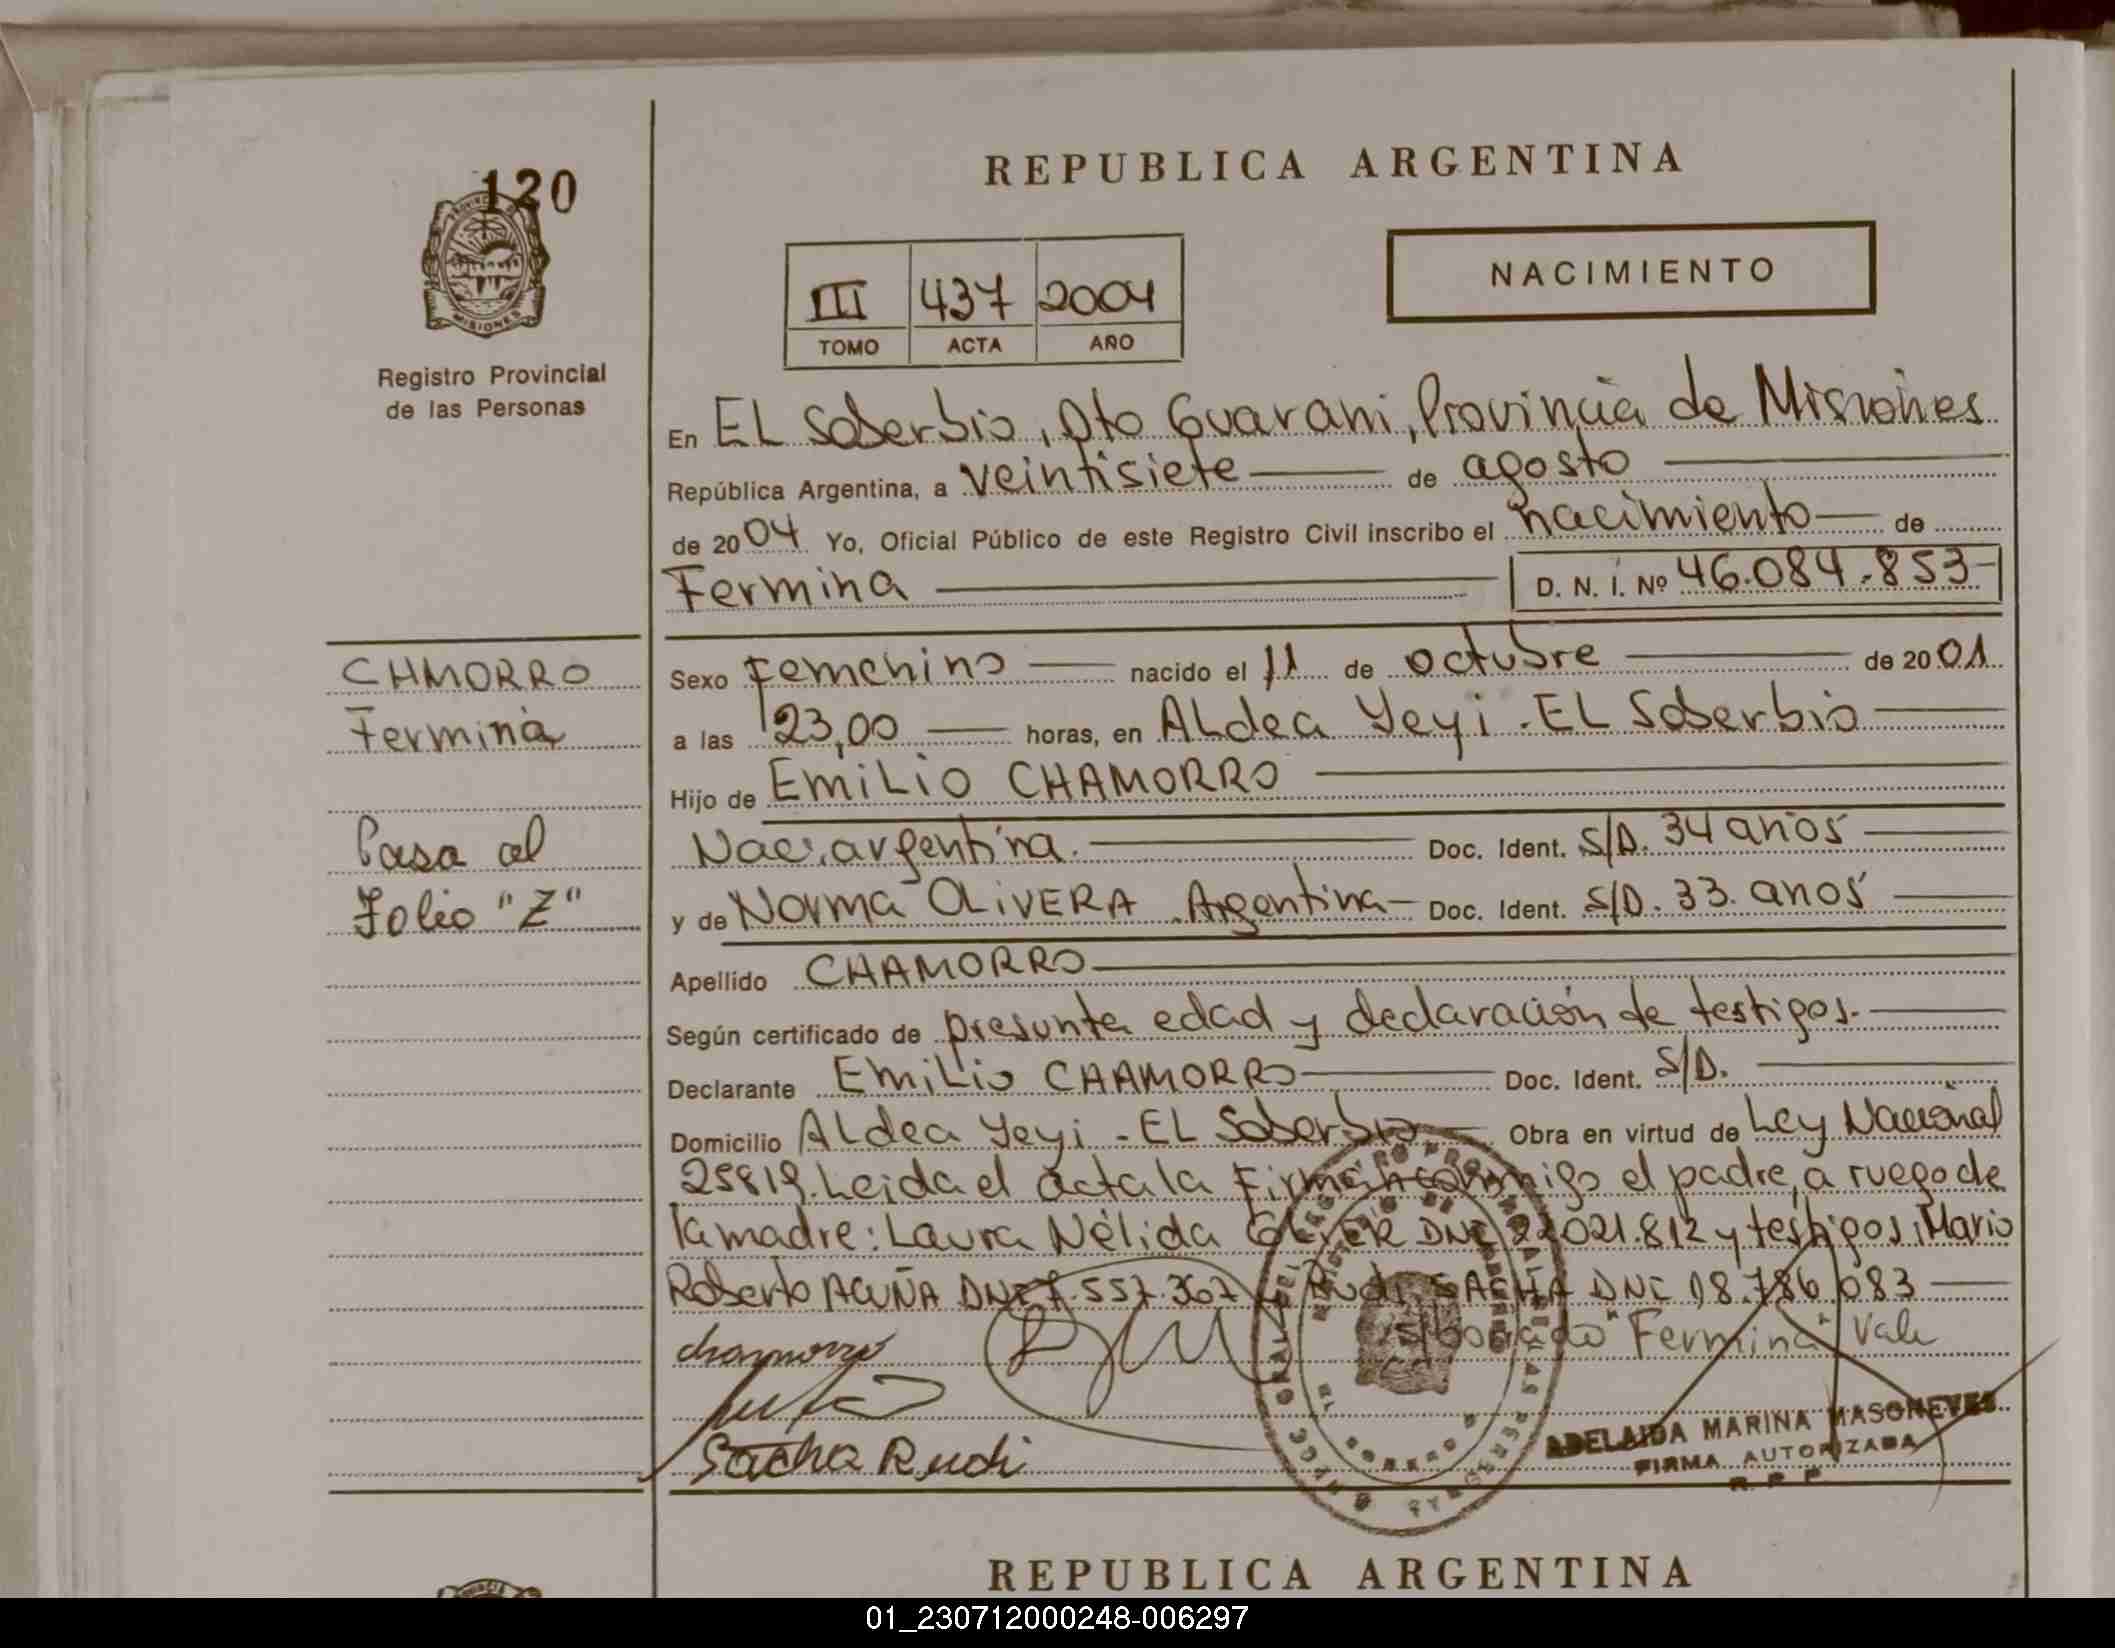 120
PROVINCIA DE
MISIONES
Registro Provincial
de las Personas
REPUBLICA ARGENTINA
III 437 2004
TOMO ACTA AÑO
NACIMIENTO
En EL Soberbio, Dto Guarani, Provincia de Misiones
República Argentina, a veintisiete de agosto
de 2004 Yo, Oficial Público de este Registro Civil inscribo el nacimiento de
Fermina D. N. I. Nº 46.084.853
CHMORRO
Fermina
Pasa al
Folio "Z"
Sexo Femenino nacido el 11 de octubre de 2001
a las 23,00 horas, en ALdea Yeyi - EL Soberbio
Hijo de EMiLiO CHAMORRO
Nac. argentina. Doc. Ident. S/D. 34 años
y de Norma OLiVERA Argentina Doc. Ident. S/D. 33. anos
Apellido CHAMORRO
Según certificado de presunta edad y declaración de testigos.
Declarante EmiLio CHAMORRO Doc. Ident. S/D.
Domicilio ALdea Yeyi - EL Soberbio Obra en virtud de Ley Nacional
25819. Leida el acta la Firman conmigo el padre, a ruego de
la madre: Laura Nélida DNI 22021.812 y testigos, Mario
Roberto ACUÑA DNI 7.557.367 y Rudi SACHA DNI 18.786.083
S/borrado "Fermina" Vale
chamorro
Sacha Rudi
ADELAIDA MARINA MASONEVES
FIRMA AUTORIZADA
R. P. P.
REPUBLICA ARGENTINA
01_230712000248-006297